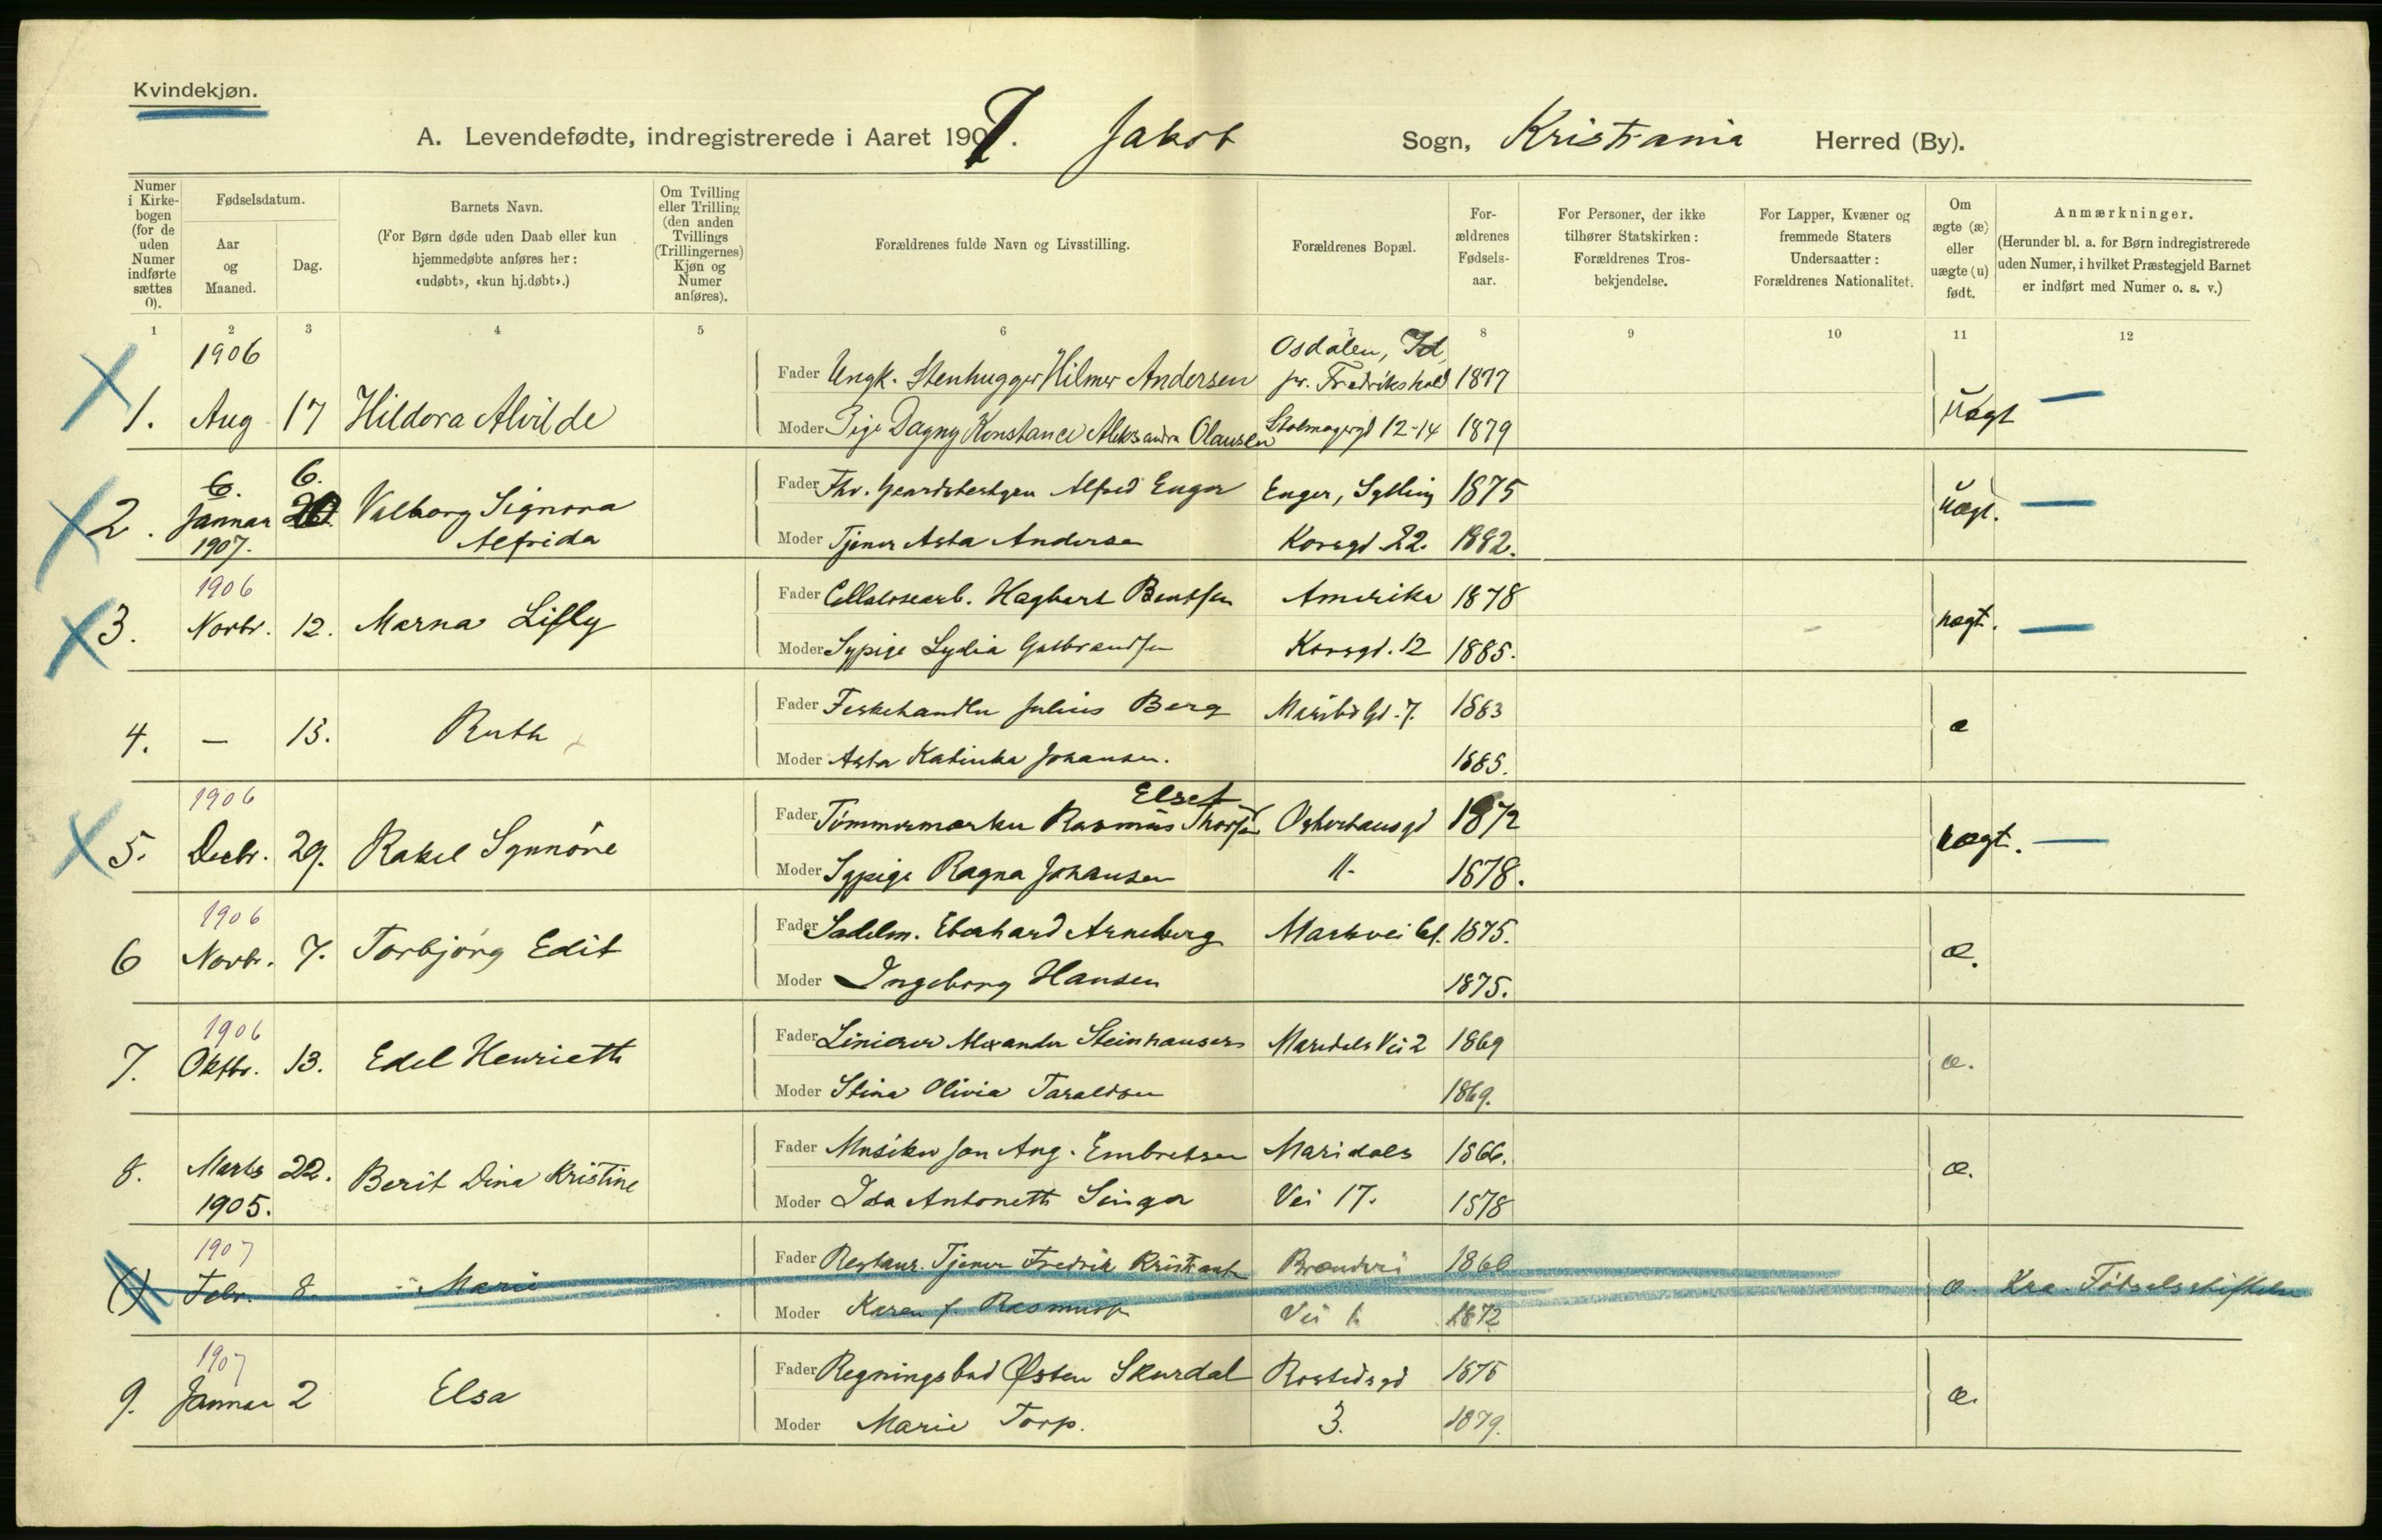 Kvindekjøn.
A. Levendefødte, indregistrerede i Aaret 1907. Jakob Sogn, Kristiania Herred (By).
Numer i Kirkebogen (for de uden Numer indførte sættes 0).
Fødselsdatum.
Aar og Maaned.
Dag.
Barnets Navn.
(For Børn døde uden Daab eller kun hjemmedøbte anføres her: «udøbt», «kun hj.døbt».)
Om Tvilling eller Trilling (den anden Tvillings (Trillingernes) Kjøn og Numer anføres).
Forældrenes fulde Navn og Livsstilling.
Forældrenes Bopæl.
Forældrenes Fødselsaar.
For Personer, der ikke tilhører Statskirken: Forældrenes Trosbekjendelse.
For Lapper, Kvæner og fremmede Staters Undersaatter: Forældrenes Nationalitet.
Om ægte (æ) eller uægte (u) født.
Anmærkninger.
(Herunder bl. a. for Børn indregistrerede uden Numer, i hvilket Præstegjeld Barnet er indført med Numer o. s. v.)
1 2 3 4 5 6 8 9 10 11 12
1906
1. Aug 17 Hildora Alvilde
Fader Ungk. Stenhugger Hilmer Andersen Osdalen, Id, pr. Fredrikshald 1877
Moder Pige Dagny Konstance Aleksandra Olausen 12-14 1879
uægt —
6. 6.
2. Januar 20. Valborg Signora
1907. Alfrida
Fader Alfred Enger Enger, Sylling 1875
Moder Tjener Asta Andersen Korsgd. 22. 1882.
uægt. —
1906
3. Novbr. 12. Marna Lilly
Fader Cellulosearb. Hagbart Bentsen Amerika 1878
Moder Sypige Lydia Gulbrandsen Korsgd. 12 1885.
uægt. —
4. — 13. Ruth
Fader Feskehandler Julius Berg Maribogd. 7. 1883
Moder Asta Katinka Johansen. 1885.
æ
1906
5. Decbr. 29. Rakel Synnöve
Elset
Fader Tømmermærker Rasmus Thorsen Osterhausgd 1872
Moder Sypige Ragna Johansen 11. 1878.
uægt. —
1906
6 Novbr. 7. Torbjörg Edit
Fader Sadelm. Eberhard Arneberg Markvei 61. 1875.
Moder Ingeborg Hansen 1875.
æ.
1906
7. Oktbr. 13. Edel Henriette
Fader Linierer Alexander Steinhausers Maridals Vei 2 1869
Moder Stina Olivia Taraldsen 1869.
æ.
8. Marts 22. Berit Dina Kristine
1905.
Fader Musiker Jon Aug. Embretsen Maridals 1866.
Moder Ida Antonette Singer Vei 17. 1878
æ.
1907
() Febr. 8. Marie
Fader Restaur. Tjener Fredrik Kristiansen 1860
Moder Karen f. Rasmussen Vei 1. 1872
æ. Kra. Fødselsstiftelse
1907
9. Januar 2 Elsa
Fader Regningsbud Østen Skurdal Rostedsgd 1875
Moder Marie Torp. 3. 1879.
æ.